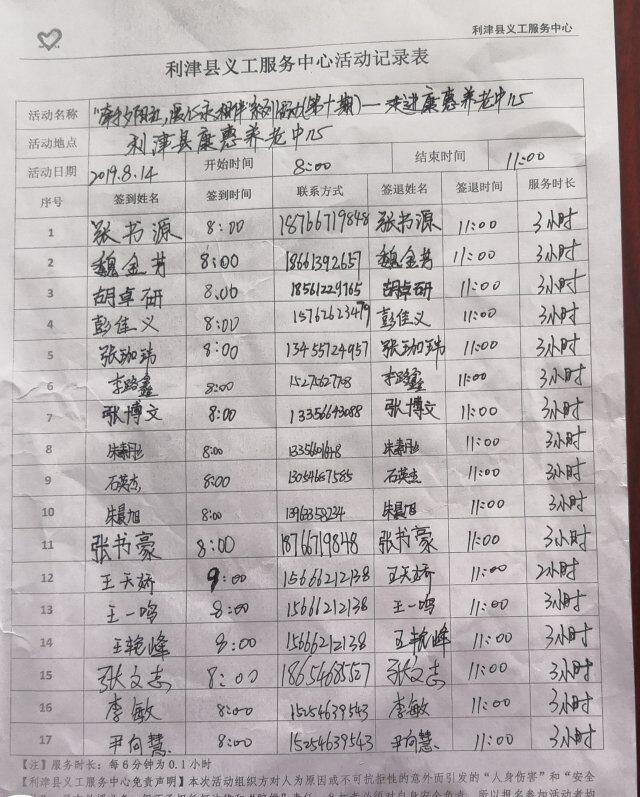 利津县义工服务中心
利津县义工服务中心活动记录表
活动名称 "牵手夕阳红,爱心永相伴"系列活动(第十期)——走进康惠养老中心
活动地点 利津县康惠养老中心
活动日期 2019.8.14 开始时间 8:00 结束时间 11:00
序号 签到姓名 签到时间 联系方式 签退姓名 签退时间 服务时长
1 张书源 8:00 18766719848 张书源 11:00 3小时
2 魏金芳 8:00 18661392657 魏金芳 11:00 3小时
3 胡卓研 8:00 18561229765 胡卓研 11:00 3小时
4 彭佳义 8:00 15762623479 彭佳义 11:00 3小时
5 张珈玮 8:00 13455724957 张珈玮 11:00 3小时
6 李璐鑫 8:00 李璐鑫 11:00 3小时
7 张博文 8:00 13356643088 张博文 11:00 3小时
8 8:00 11:00 3小时
9 石英杰 8:00 13054687585 石英杰 11:00 3小时
10 朱晨旭 8:00 朱晨旭 11:00 3小时
11 张书豪 8:00 18766719848 张书豪 11:00 3小时
12 王天娇 9:00 15666212138 王天娇 11:00 2小时
13 王一鸣 8:00 15666212138 王一鸣 11:00 3小时
14 王艳峰 8:00 15666212138 王艳峰 11:00 3小时
15 张文志 8:00 18654685527 张文志 11:00 3小时
16 李敏 8:00 15254639543 李敏 11:00 3小时
17 尹向慧 8:00 15254639543 尹向慧 11:00 3小时
【注】服务时长:每6分钟为0.1小时
【利津县义工服务中心免责声明】本次活动组织方对人为原因或不可抗拒性的意外而引发的"人身伤害"和"安全